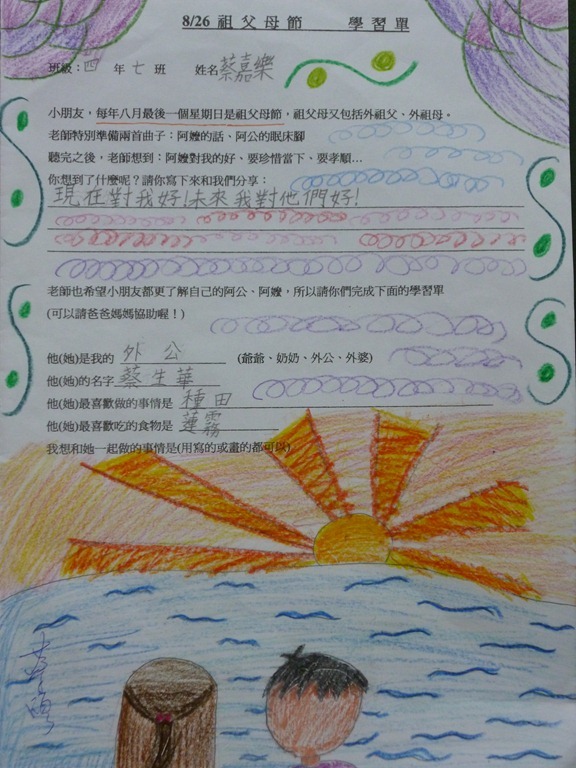 8/26 祖父母節 學習單
班級：四 年 七 班 姓名 蔡嘉樂
小朋友，每年八月最後一個星期日是祖父母節，祖父母又包括外祖父、外祖母。
老師特別準備兩首曲子：阿嬤的話、阿公的眠床腳
聽完之後，老師想到：阿嬤對我的好、要珍惜當下、要孝順…
你想到了什麼呢？請你寫下來和我們分享：
現在對我好!未來我對他們好!
老師也希望小朋友都更了解自己的阿公、阿嬤，所以請你們完成下面的學習單
(可以請爸爸媽媽協助喔！)
他(她)是我的 外公 (爺爺、奶奶、外公、外婆)
他(她)的名字 蔡生華
他(她)最喜歡做的事情是 種田
他(她)最喜歡吃的食物是 蓮霧
我想和她一起做的事情是(用寫的或畫的都可以)